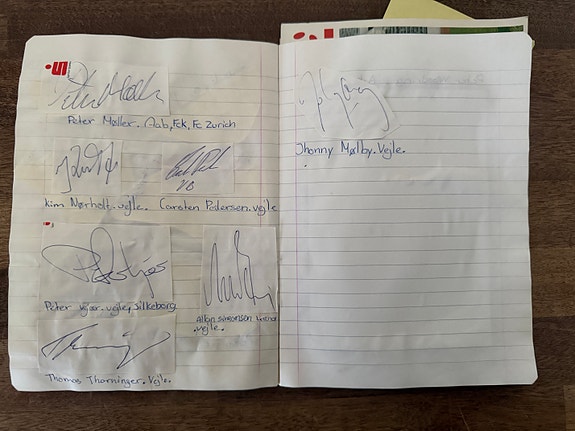 Peter Møller. Aab, Fck, Fc Zurich
Kim Nørholt. vejle. Carsten Pedersen. vejle
VB
Peter Kjær. vejle, Silkeborg
Allan Simonsen
vejle.
Thomas Thorninger. Vejle.
Jhonny Mølby. Vejle.